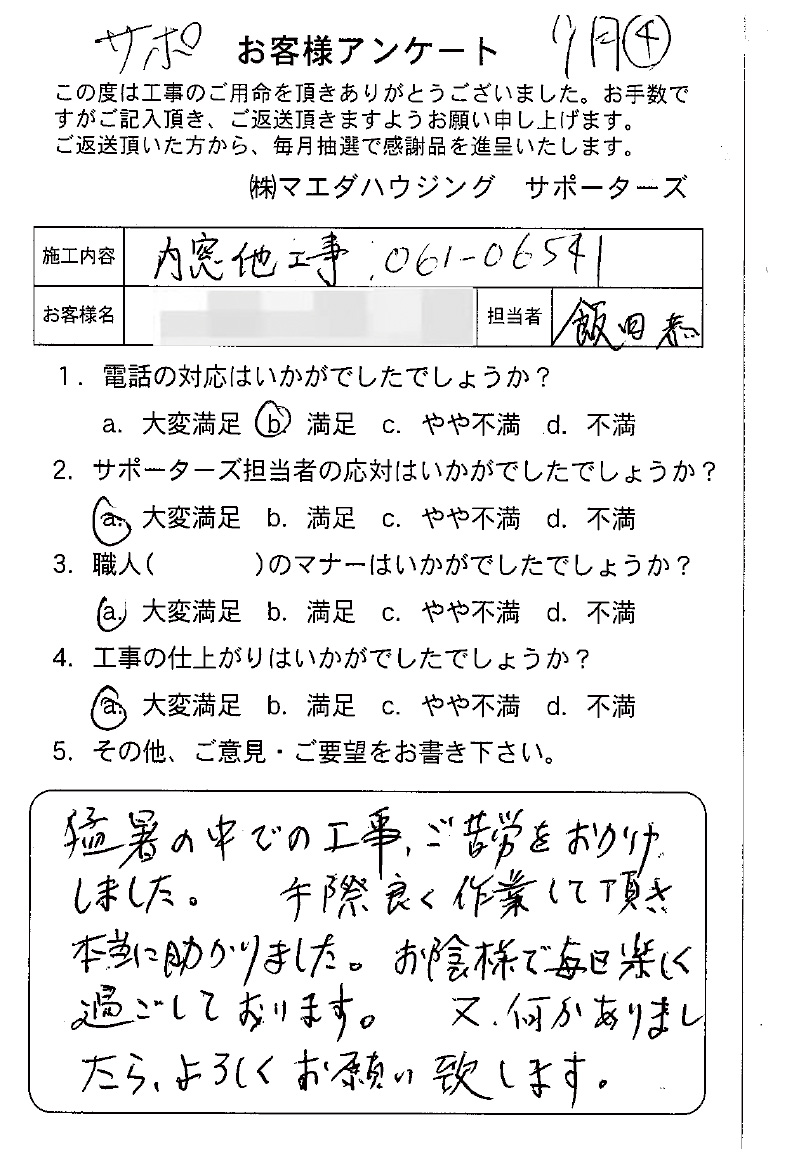 サポ お客様アンケート 9月④
この度は工事のご用命を頂きありがとうございました。お手数で
すがご記入頂き、ご返送頂きますようお願い申し上げます。
ご返送頂いた方から、毎月抽選で感謝品を進呈いたします。
㈱マエダハウジング サポーターズ
施工内容 内窓他工事 061-06541
お客様名 担当者 飯田恭
1. 電話の対応はいかがでしたでしょうか?
a. 大変満足 b. 満足 c. やや不満 d. 不満
2. サポーターズ担当者の応対はいかがでしたでしょうか?
a. 大変満足 b. 満足 c. やや不満 d. 不満
3. 職人( )のマナーはいかがでしたでしょうか?
a. 大変満足 b. 満足 c. やや不満 d. 不満
4. 工事の仕上がりはいかがでしたでしょうか?
a. 大変満足 b. 満足 c. やや不満 d. 不満
5. その他、ご意見・ご要望をお書き下さい。
猛暑の中での工事、ご苦労をおかけ
しました。 手際良く作業して頂き
本当に助かりました。お陰様で毎日楽しく
過ごしております。 又、何かありまし
たら、よろしくお願い致します。